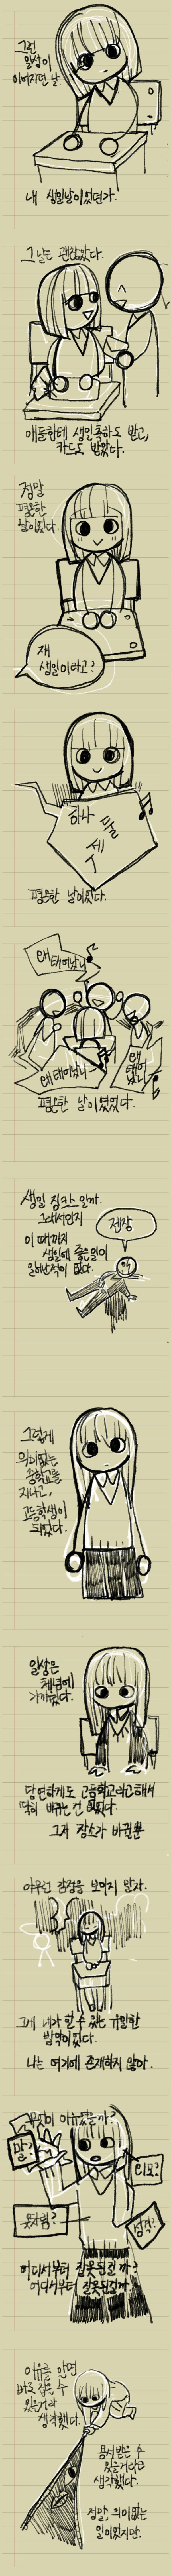 그런
일상이
이어지던 날.
내 생일날이었던가.
그날은 괜찮았다.
애들한테 생일축하도 받고,
카드도 받았다.
정말
평온한
날이었다.
쟤
생일이라고?
하나
둘
세
평온한 날이었다.
왜 태어났니
왜 태어났니
왜
태어
났니
평온한 날이였었다.
생일 징크스일까.
그래서인지
이 때까지
생일에 좋은일이
일어난적이 없다.
젠장
그렇게
의미없는
중학교를
지나고,
고등학생이
되었다.
일상은
체념에
가까웠다.
당연하게도 고등학교라고해서
딱히 바뀌는 건 없었다.
그저 장소가 바뀔뿐
아무런 감정을 보이지 말자.
그게 내가 할 수 있는 유일한
방어였다.
나는 여기에 존재하지 않아.
이유였을까?
말?
외모?
옷차림?
성격?
어디서부터 잘못된걸까?
어디서부터 잘못된걸까?
이유를 알면
바로 잡을 수
있을거라
생각했다.
용서받을 수
있을거라고
생각했다.
정말, 의미없는
일이었지만.